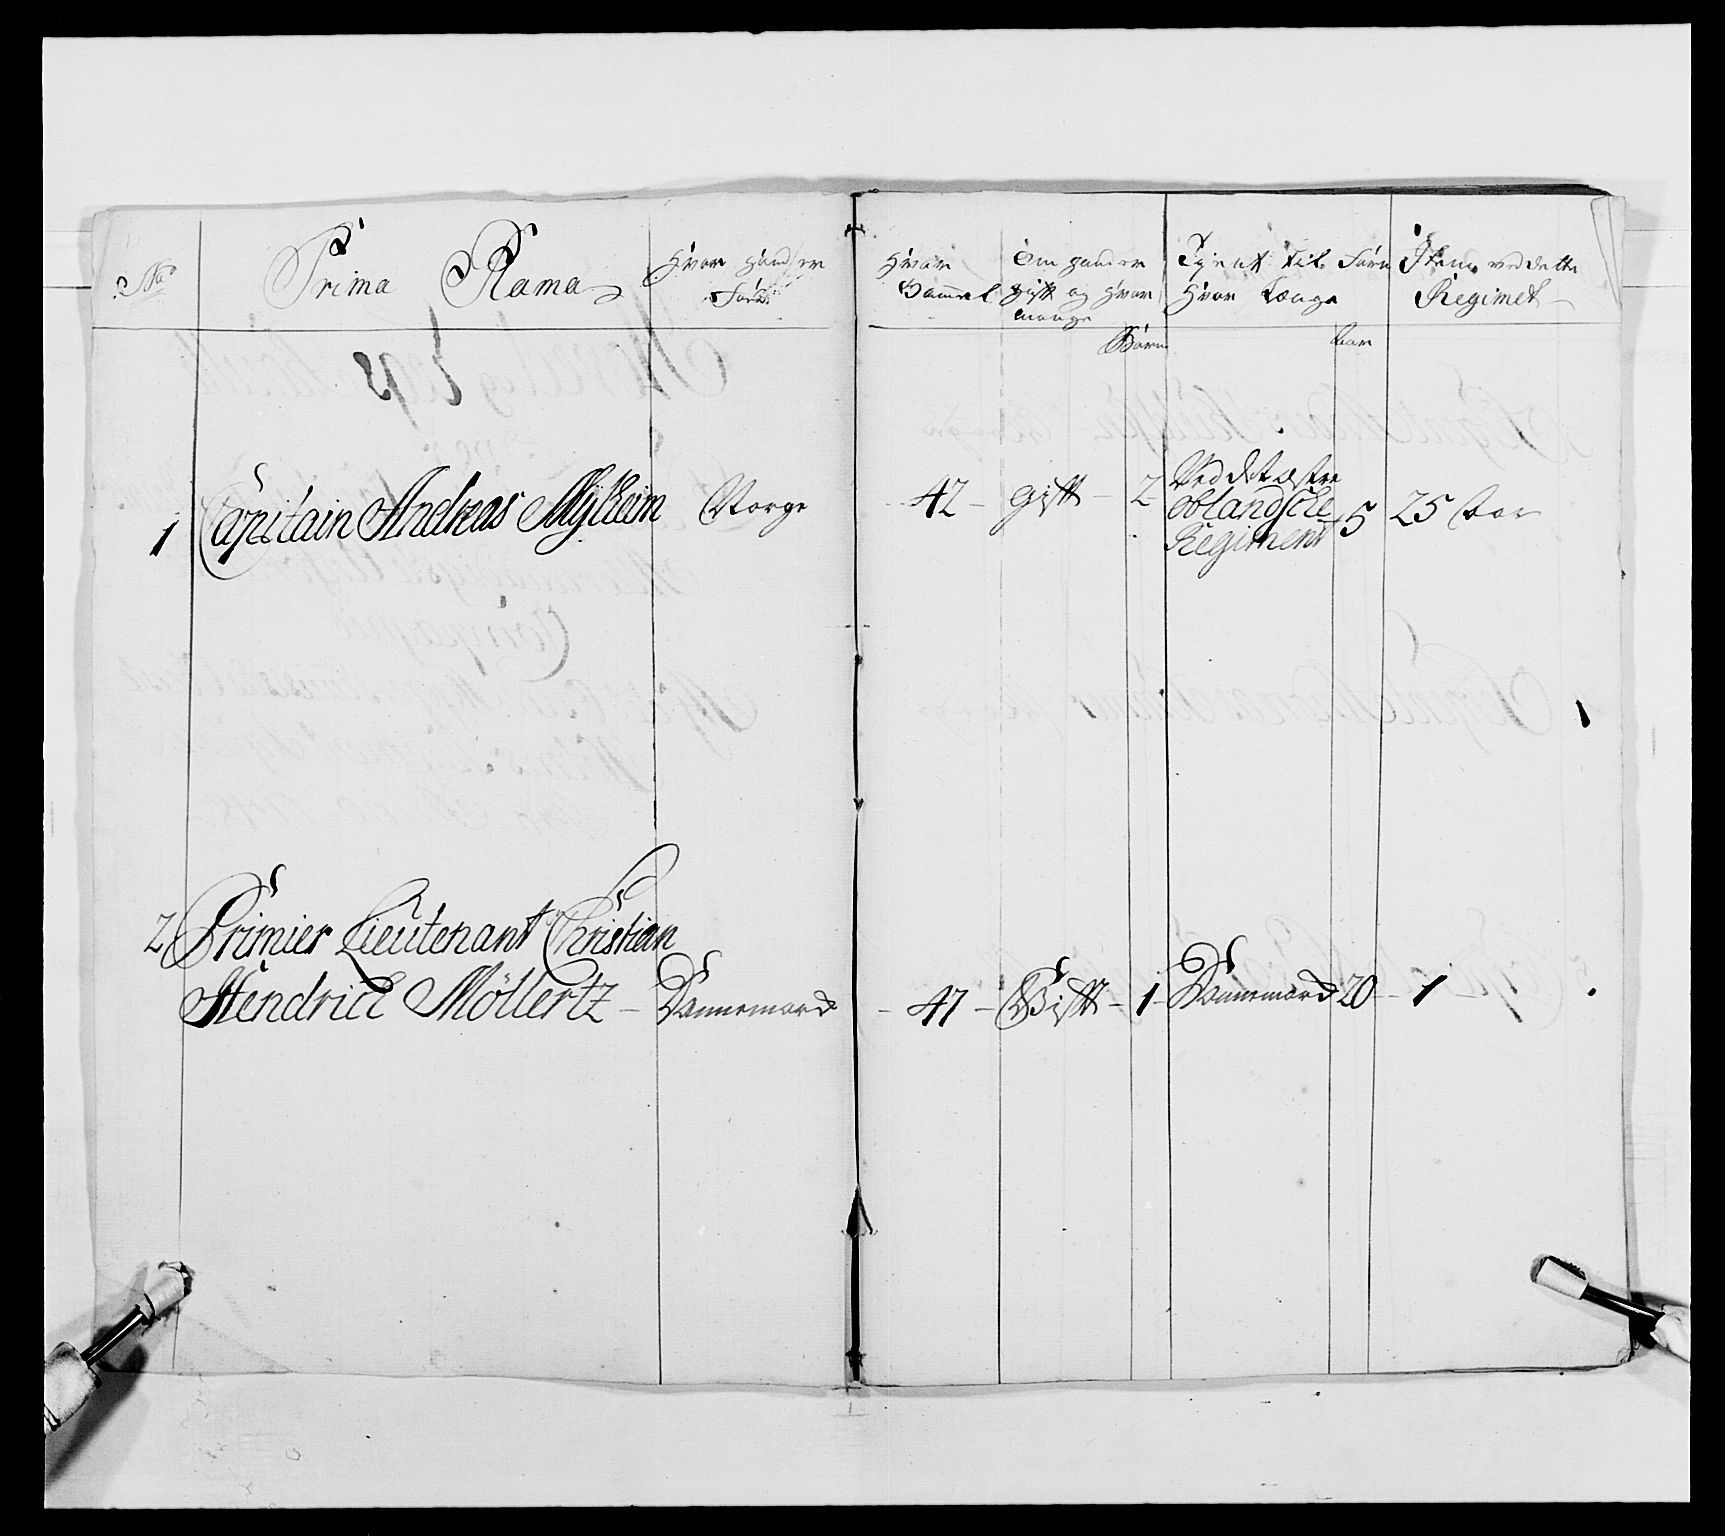 No
Prima Rama
Hvor hand er
Hvor
Gammel
Om hand er
gift og hvor
mange
Børn
Tient til Forn
Hvor Længe
Aar
Item ved dette
Regimet
1 Capitain Andreas Mylheim Norge 42 gift 2
Ved det
oblandsche
Regiment 5 25 Aar
2 Primier Lieutenant Christian
Hendrich Möllertz Dannemarck 47 Gift 1 Dannemarck 20 1